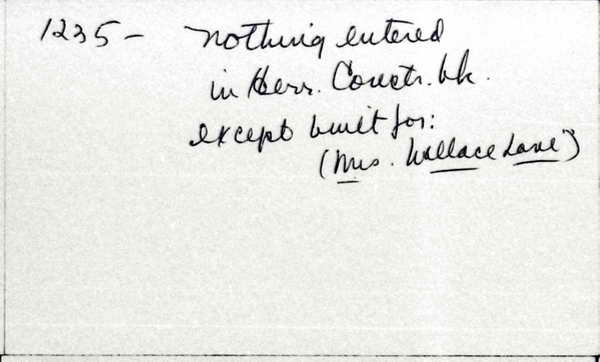 1235- nothing entered
in Herr. Constr. bk.
except built for:
(Mrs. Wallace Lane")